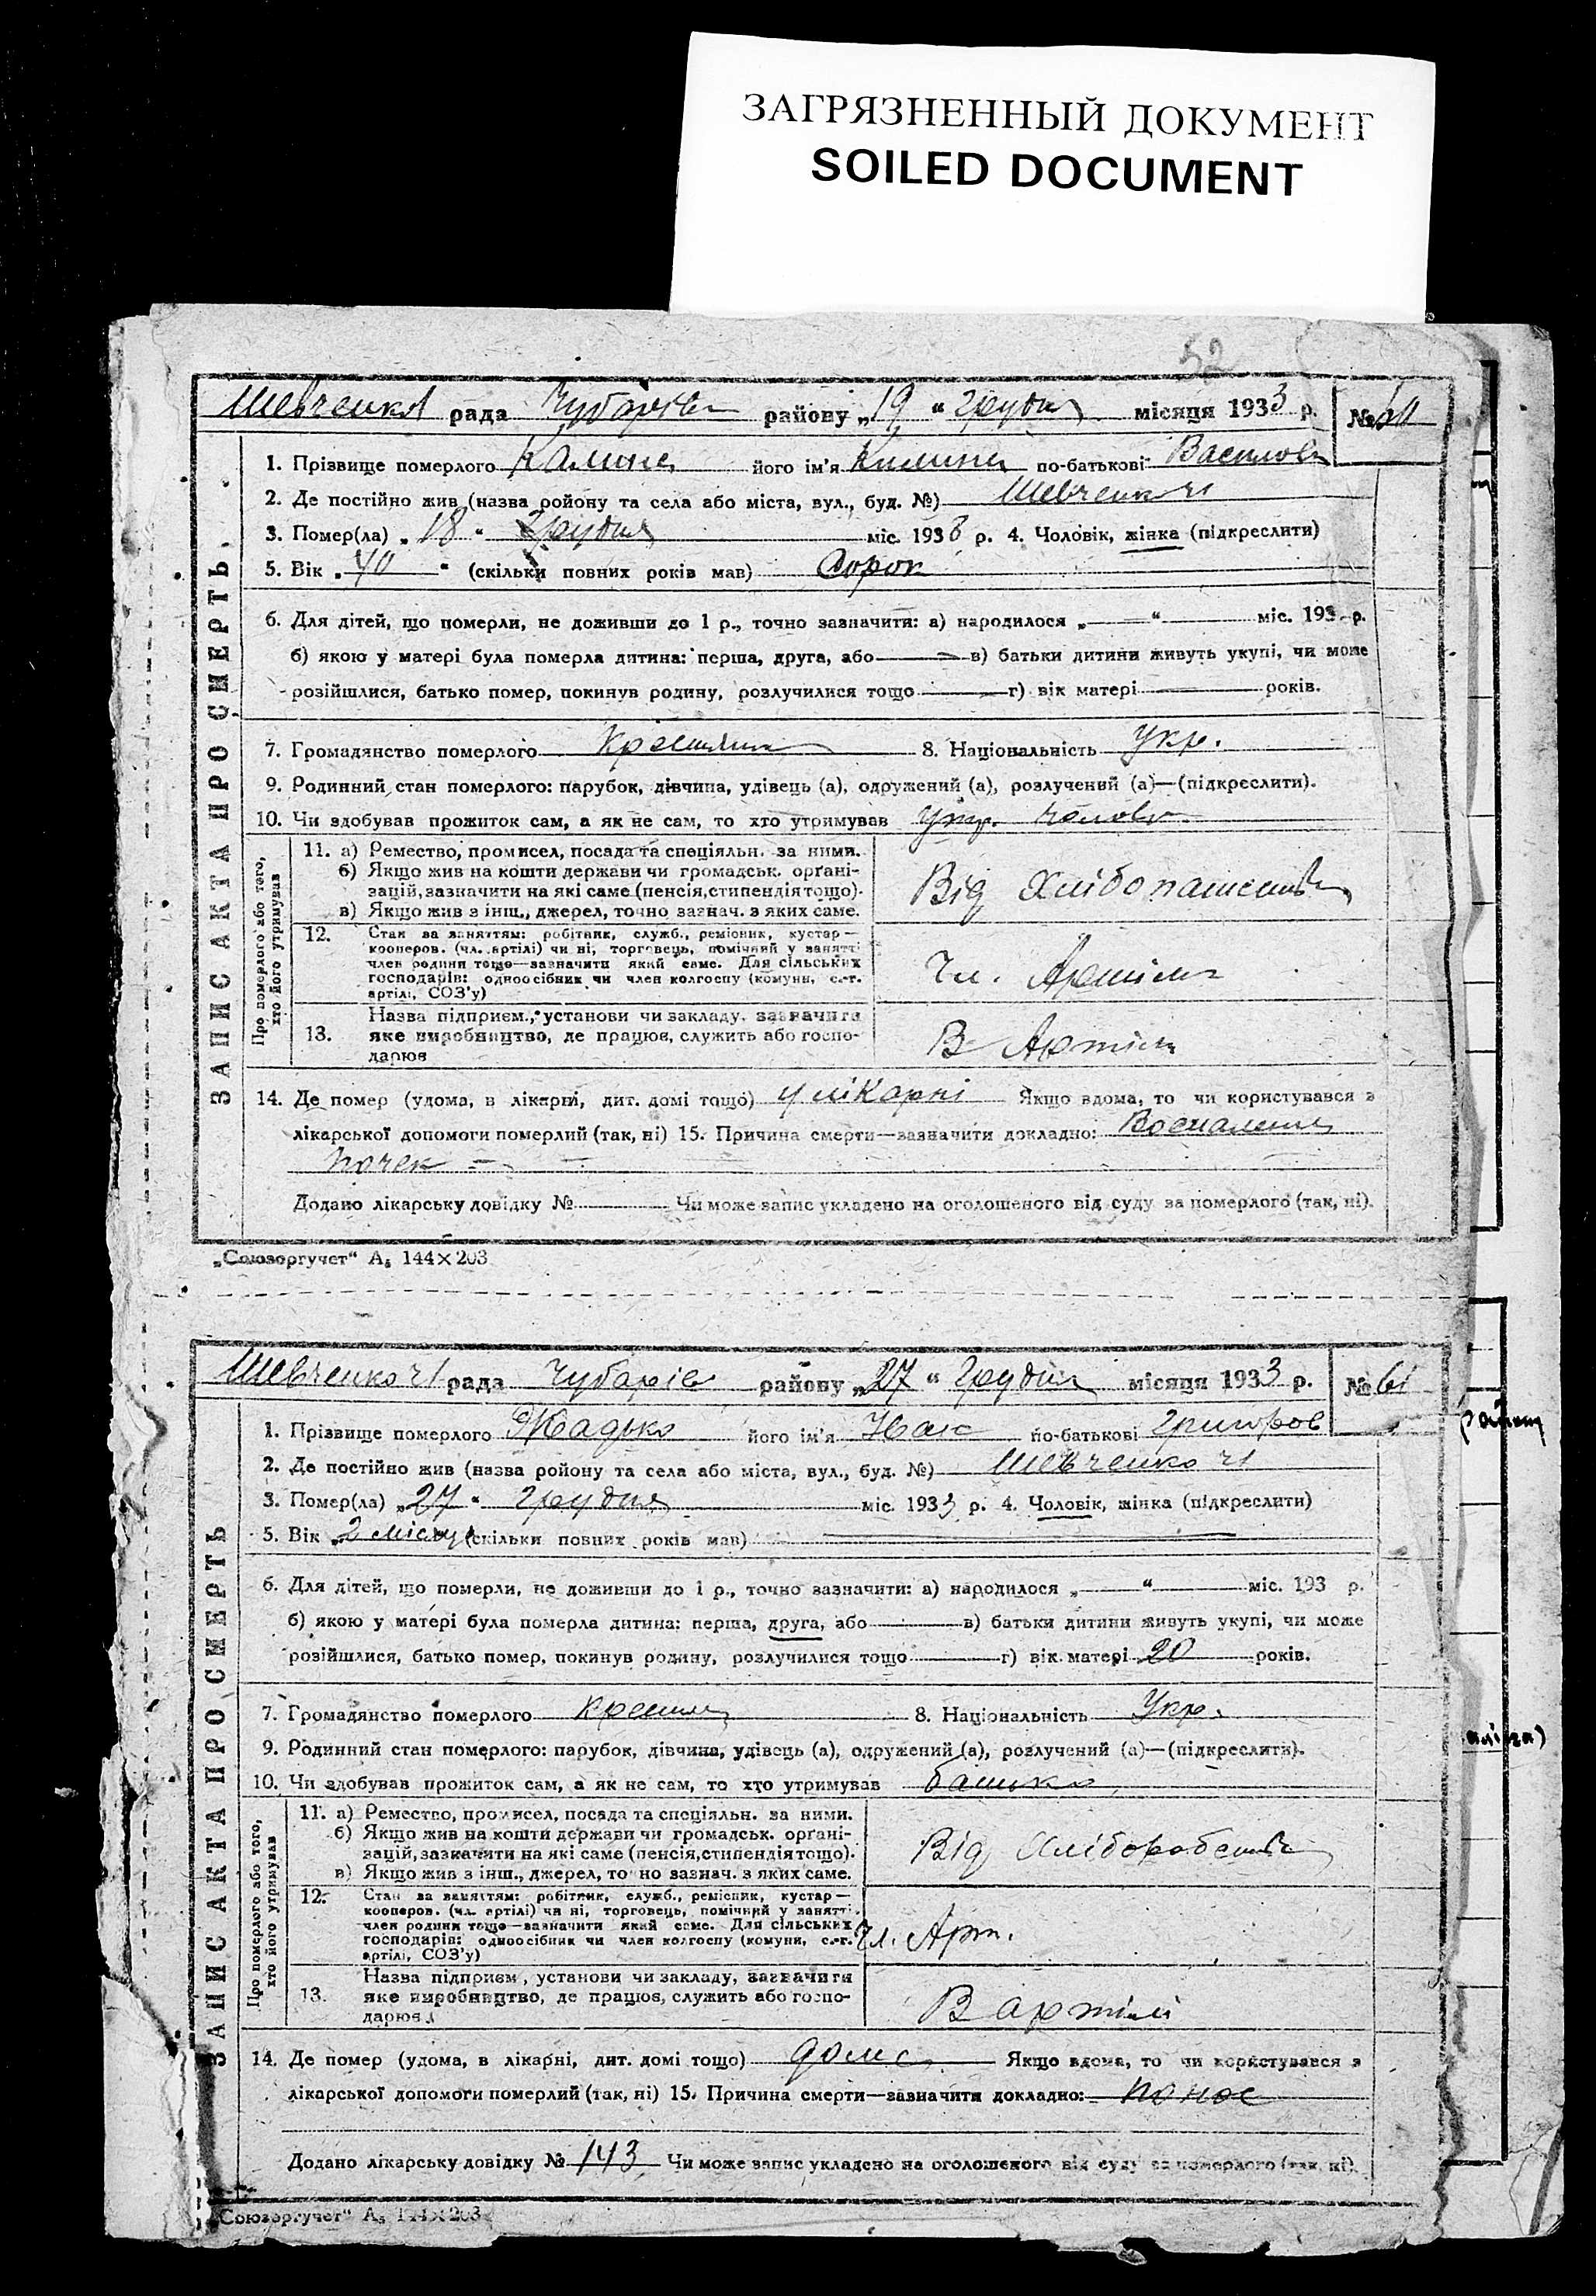 ЗАГРЯЗНЕННЫЙ ДОКУМЕНТ
SOILED DOCUMENT
52
рада Чубарів району „19“ грудня місяця 1933 р. №
1. Прізвище померлого його ім'я по-батькові
2. Де постійно жив (назва ройону та села або міста, вул., буд. №)
3. Помер(ла) „18“ Грудня міс. 193 р. 4. Чоловік, жінка (підкреслити)
5. Вік „40“ (скільки повних років мав) Сорок
6. Для дітей, що померли, не доживши до 1 р., точно зазначити: а) народилося „ “ міс. 193 р.
б) якою у матері була померла дитина: перша, друга, або в) батьки дитини живуть укупі, чи може
розійшлися, батько помер, покинув родину, розлучилися тощо г) вік матері років.
7. Громадянство померлого 8. Національність Укр.
9. Родинний стан померлого: парубок, дівчина, удівець (а), одружений (а), розлучений (а)—(підкреслити).
10. Чи здобував прожиток сам, а як не сам, то хто утримував
ЗАПИС АКТА ПРО СМЕРТЬ
Про померлого або того,
хто його утримував
11. а) Ремество, промисел, посада та спеціяльн. за ними.
б) Якщо жив на кошти держави чи громадськ. орґані-
зацій, зазначити на які саме (пенсія, стипендія тощо).
в) Якщо жив з інш., джерел, точно зазнач. з яких саме.
Від
12. Стан за заняттям: робітник, служб., ремісник, кустар—
кооперов. (чл. артілі) чи ні, торговець, помічний у занятті
член родини тощо—зазначити який саме. Для сільських
господарів: одноосібник чи член колгоспу (комуни, с.-г.
артілі, СОЗ'у)
Чл.
13. Назва підприєм., установи чи закладу, зазначити
яке виробництво, де працює, служить або госпо-
дарює
В
14. Де помер (удома, в лікарні, дит. домі тощо) у лікарні Якщо вдома, то чи користувався з
лікарської допомоги померлий (так, ні) 15. Причина смерти—зазначити докладно: Воспаления
почек
Додано лікарську довідку № Чи може запис укладено на оголошеного від суду за померлого (так, ні).
„Союзоргучет“ А₅ 144×203
рада Чубарів району „27“ Грудня місяця 1933 р. № 61
1. Прізвище померлого його ім'я по-батькові Григоров
2. Де постійно жив (назва ройону та села або міста, вул., буд. №)
3. Помер(ла) „27“ грудня міс. 1933 р. 4. Чоловік, жінка (підкреслити)
5. Вік „2 (скільки повних років мав)
6. Для дітей, що померли, не доживши до 1 р., точно зазначити: а) народилося „ “ міс. 193 р.
б) якою у матері була померла дитина: перша, друга, або в) батьки дитини живуть укупі, чи може
розійшлися, батько помер, покинув родину, розлучилися тощо г) вік матері 20 років.
7. Громадянство померлого 8. Національність Укр.
9. Родинний стан померлого: парубок, дівчина, удівець (а), одружений (а), розлучений (а)—(підкреслити).
10. Чи здобував прожиток сам, а як не сам, то хто утримував батько
ЗАПИС АКТА ПРО СМЕРТЬ
Про померлого або того,
хто його утримував
11. а) Ремество, промисел, посада та спеціяльн. за ними.
б) Якщо жив на кошти держави чи громадськ. орґані-
зацій, зазначити на які саме (пенсія, стипендія тощо).
в) Якщо жив з інш., джерел, точно зазнач. з яких саме.
Від
12. Стан за заняттям: робітник, служб., ремісник, кустар—
кооперов. (чл. артілі) чи ні, торговець, помічний у занятті
член родини тощо—зазначити який саме. Для сільських
господарів: одноосібник чи член колгоспу (комуни, с.-г.
артілі, СОЗ'у)
Чл. Арт.
13. Назва підприєм., установи чи закладу, зазначити
яке виробництво, де працює, служить або госпо-
дарює
В артілі
14. Де помер (удома, в лікарні, дит. домі тощо) Якщо вдома, то чи користувався з
лікарської допомоги померлий (так, ні) 15. Причина смерти—зазначити докладно: понос
Додано лікарську довідку № 143 Чи може запис укладено на оголошеного від суду за померлого (так, ні).
„Союзоргучет“ А₅ 144×203